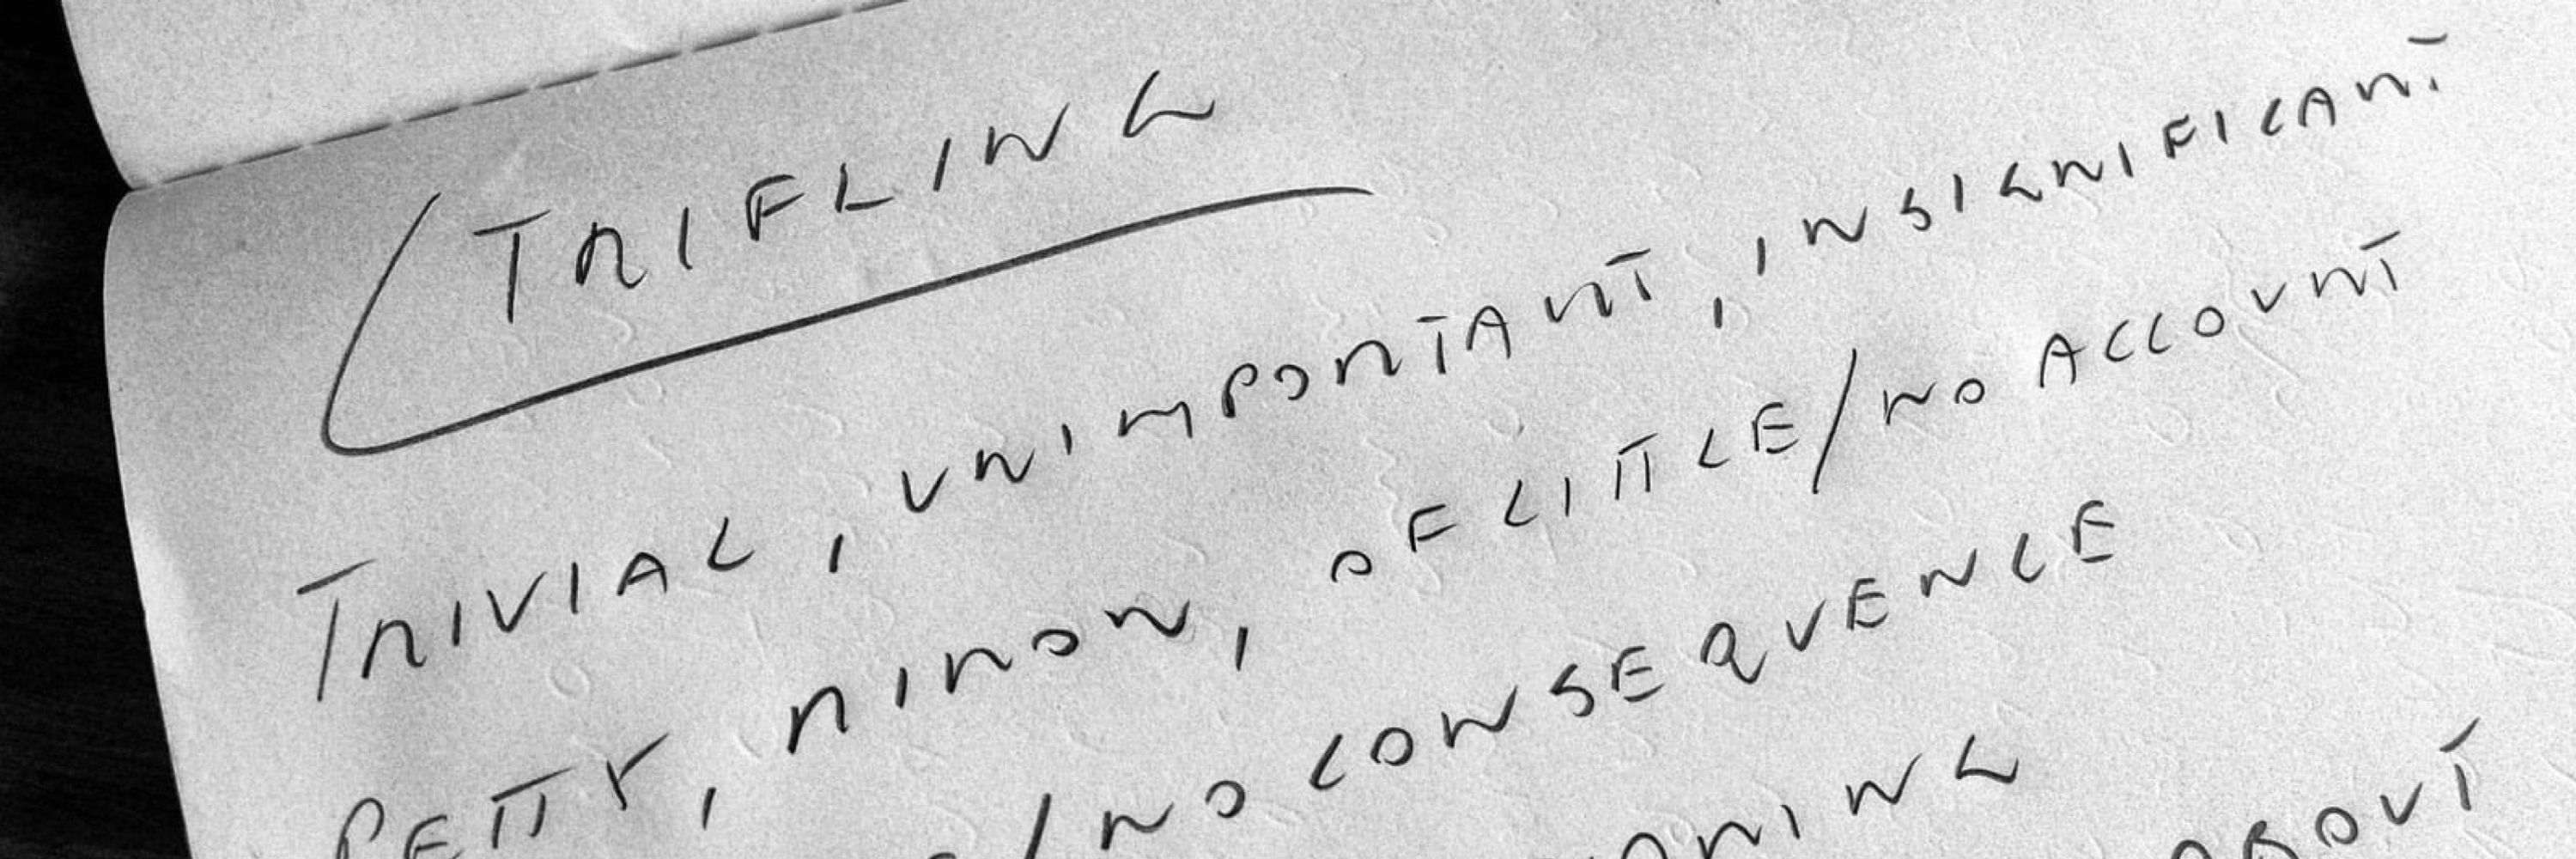 TRIFLING
TRIVIAL, UNIMPORTANT, INSIGNIFICANT
PETTY, MINOR, OF LITTLE/NO ACCOUNT
/NO CONSEQUENCE
ABOUT